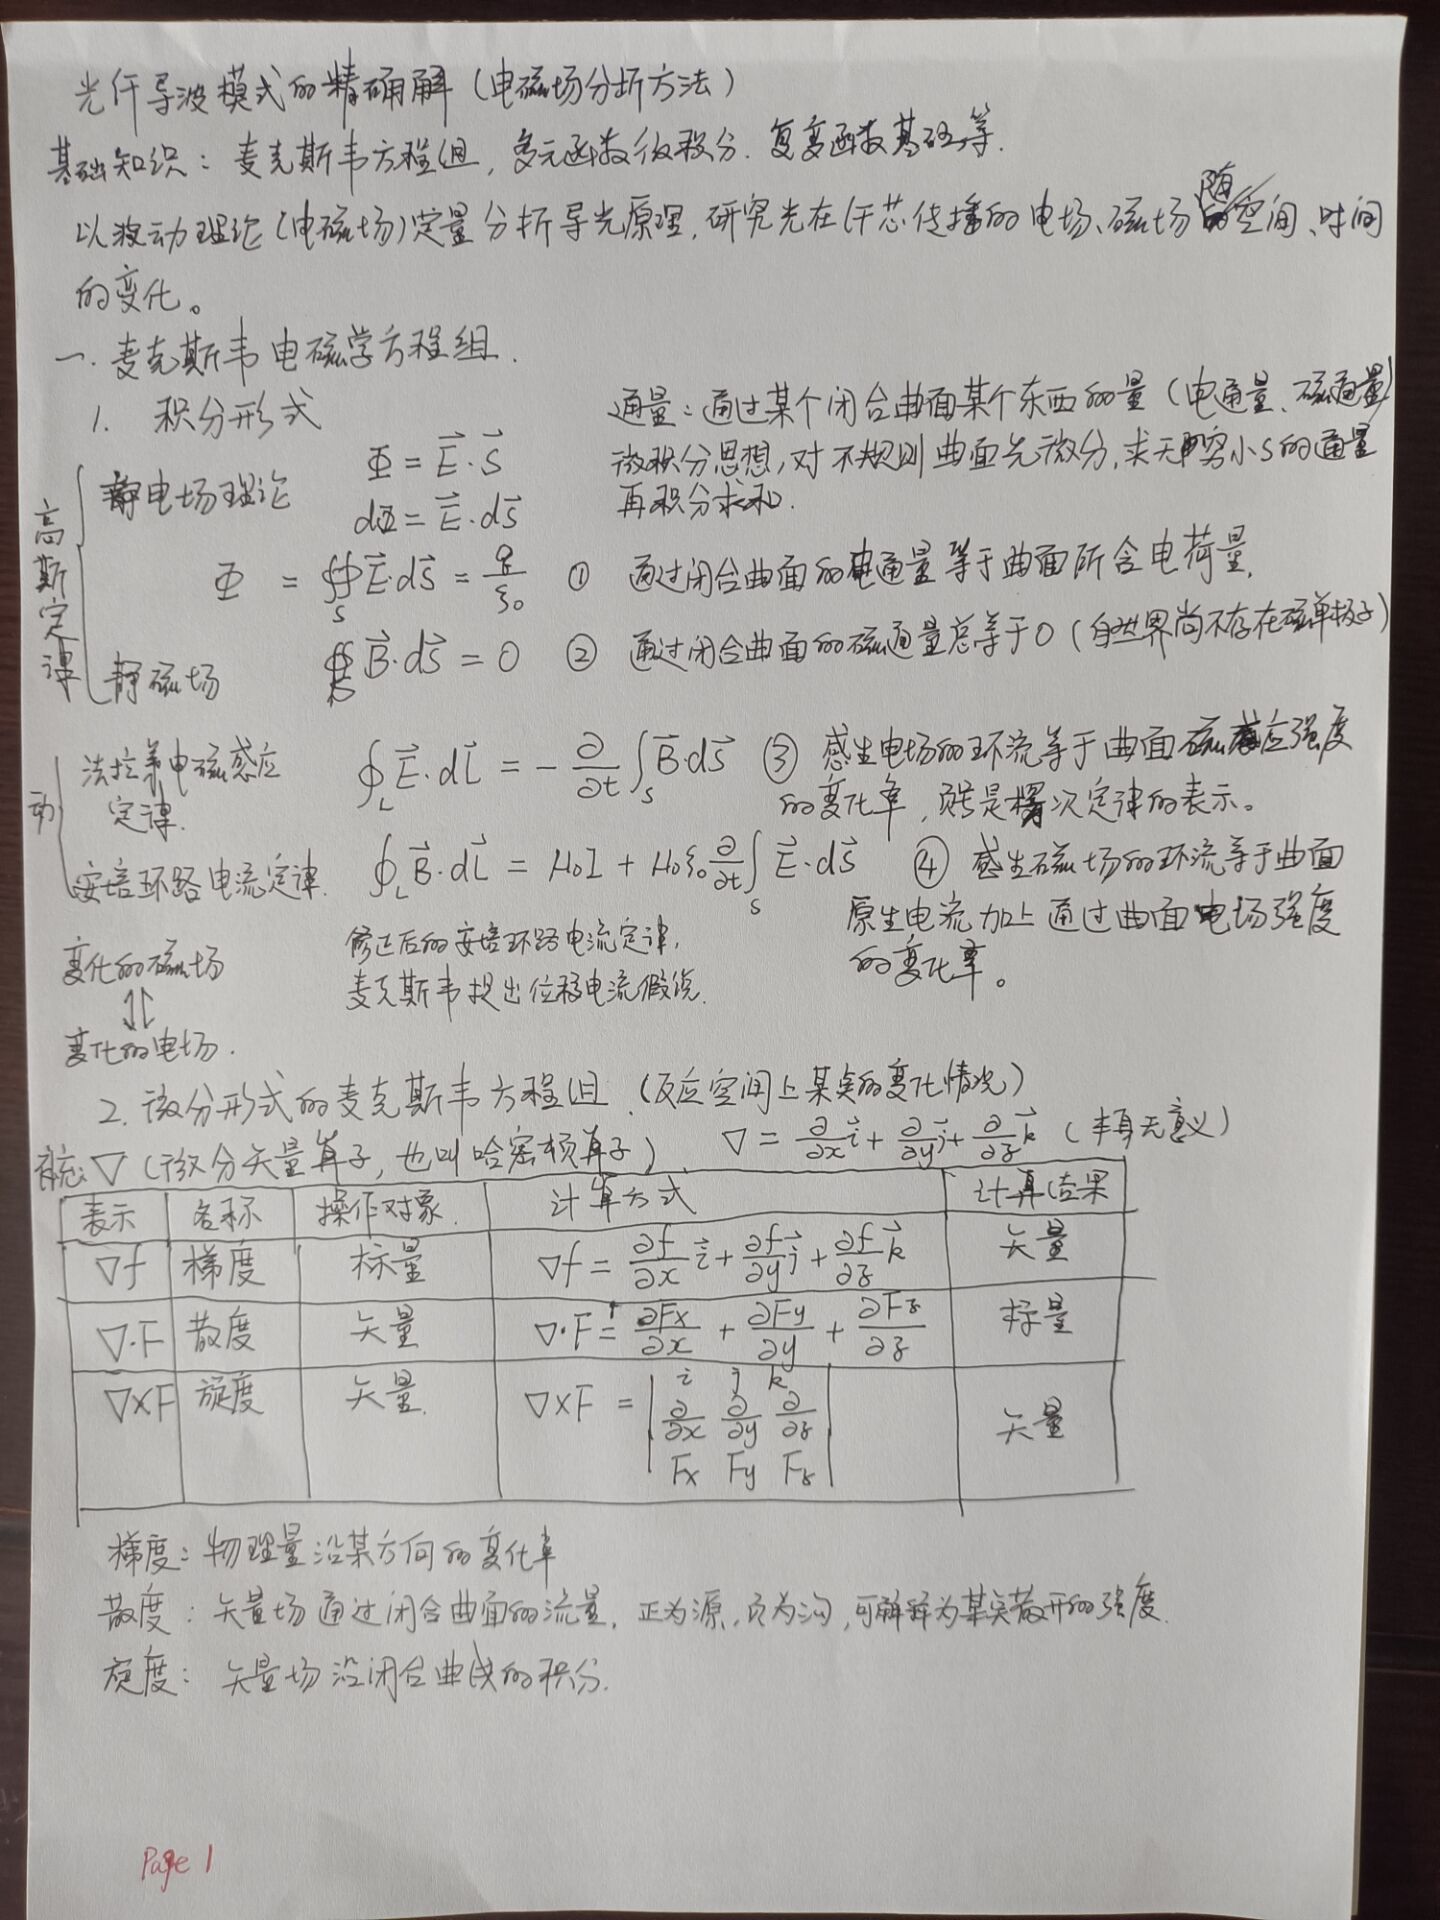 光纤导波模式的精确解(电磁场分析方法)
基础知识:麦克斯韦方程组,多元函数微积分.复变函数基础等.
以波动理论(电磁场)定量分析导光原理,研究光在纤芯传播的电场、磁场随空间、时间
的变化。
一.麦克斯韦电磁学方程组.
1. 积分形式
通量:通过某个闭合曲面某个东西的量(电通量、磁通量)
微积分思想,对不规则曲面先微分,求无穷小S的通量
再积分求和.
高斯定律
静电场理论
Φ = E⃗·S⃗
dΦ = E⃗·dS⃗
Φ = ∯_S E⃗·dS⃗ = q/ε₀ ① 通过闭合曲面的电通量等于曲面所含电荷量.
静磁场 ∯_S B⃗·dS⃗ = 0 ② 通过闭合曲面的磁通量总等于0(自然界尚不存在磁单极子)
动
法拉第电磁感应
定律.
∮_L E⃗·dL⃗ = -∂/∂t ∫_S B⃗·dS⃗ ③ 感生电场的环流等于曲面磁感应强度
的变化率,负号是楞次定律的表示。
安培环路电流定律. ∮_L B⃗·dL⃗ = μ₀I + μ₀ε₀ ∂/∂t ∫_S E⃗·dS⃗ ④ 感生磁场的环流等于曲面
原生电流加上通过曲面电场强度
的变化率。
修正后的安培环路电流定律,
麦克斯韦提出位移电流假说.
变化的磁场
⇅
变化的电场.
2. 微分形式的麦克斯韦方程组.(反应空间上某点的变化情况)
▽(微分矢量算子,也叫哈密顿算子) ▽ = ∂/∂x i⃗ + ∂/∂y j⃗ + ∂/∂z k⃗ (本身无意义)
表示 名称 操作对象. 计算方式 计算结果
▽f 梯度 标量 ▽f = ∂f/∂x i⃗ + ∂f/∂y j⃗ + ∂f/∂z k⃗ 矢量
▽·F 散度 矢量 ▽·F = ∂Fx/∂x + ∂Fy/∂y + ∂Fz/∂z 标量
▽×F 旋度 矢量. ▽×F = | i j k |
| ∂/∂x ∂/∂y ∂/∂z | 矢量
| Fx Fy Fz |
梯度:物理量沿某方向的变化率
散度:矢量场通过闭合曲面的流量,正为源,负为沟,可解释为某点散开的强度.
旋度:矢量场沿闭合曲线的积分.
Page 1